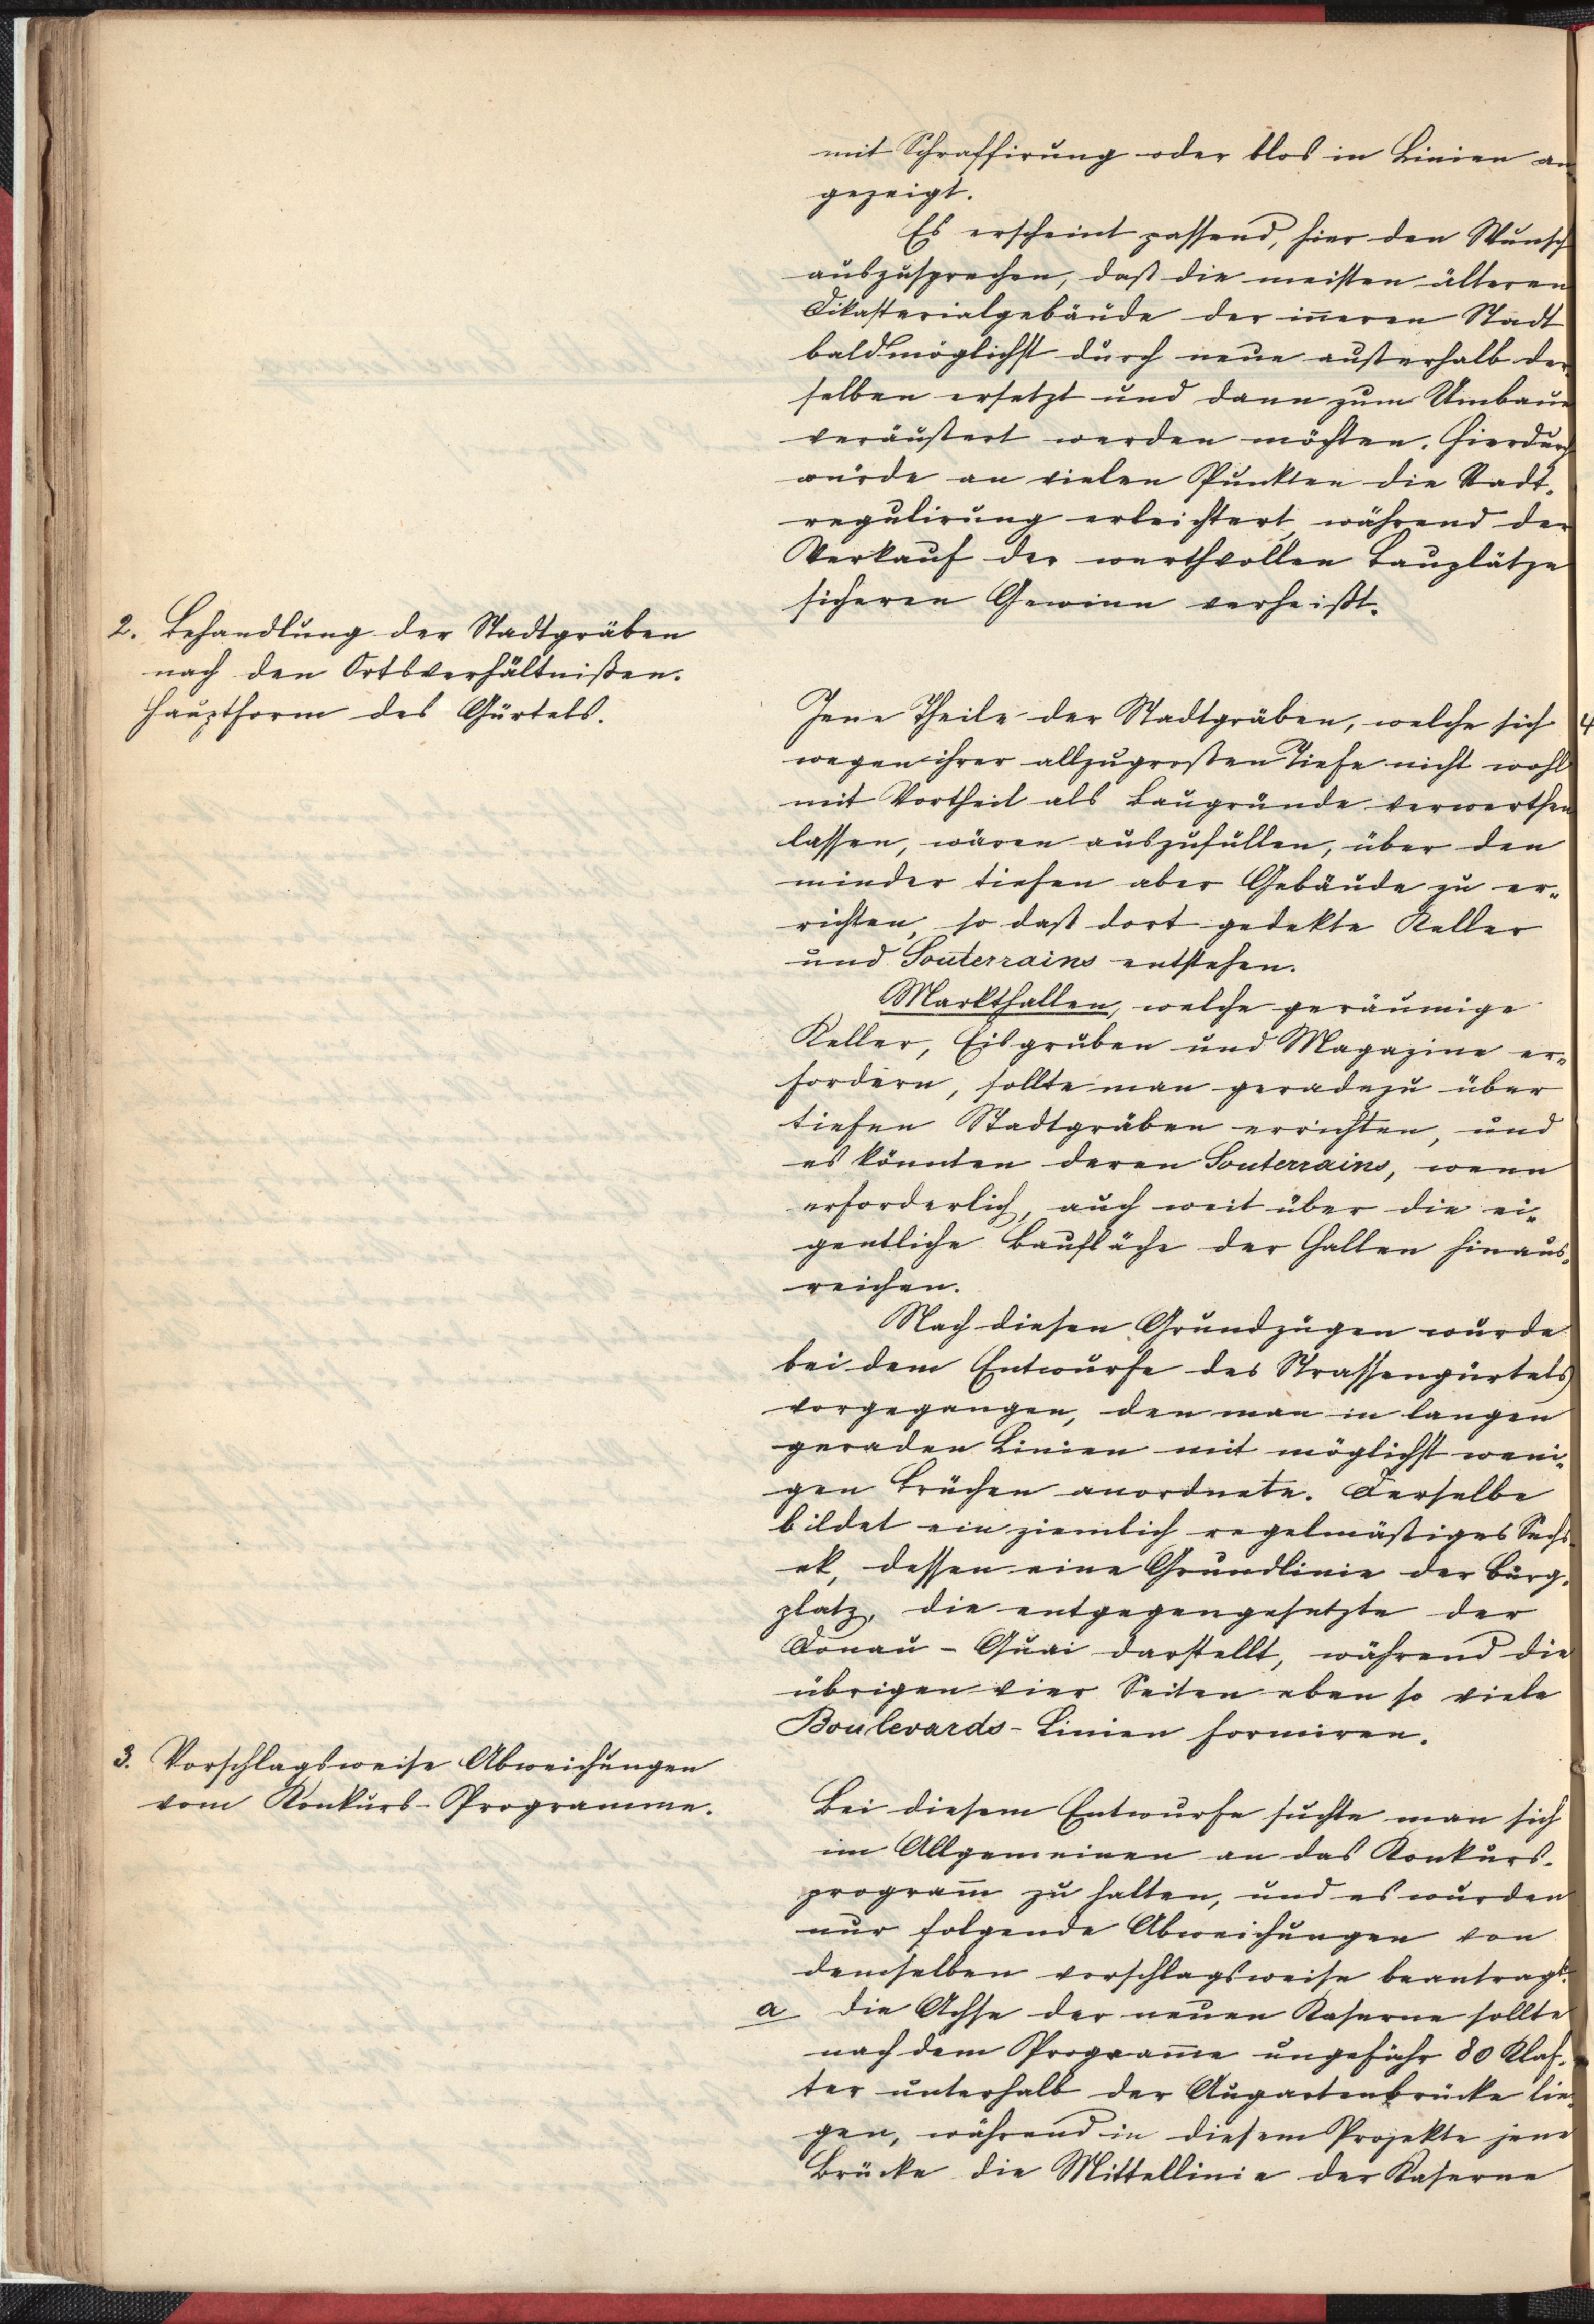 mit Schraffirung oder blos in Linien an
gezeigt.
Es erscheint passend, hier den Wunsch
auszusprechen, daß die meisten älteren
Dikasterialgebäude der iñeren Stadt
baldmöglichst durch neue außerhalb der
selben ersetzt und dann zum Umbaue
veräußert werden möchten. Hierdurch
würde an vielen Punkten die Stadt-
regulirung erleichtert, während der
Verkauf der werthvollen Bauplätze
sicheren Gewinn verheißt.
2. Behandlung der Stadtgräben
nach den Ortsverhältnißen.
Hauptform des Gürtels.
Jene Theile der Stadtgräben, welche sich
wegen ihrer allzugroßen Tiefe nicht wohl
mit Vortheil als Baugründe verwerthen
lassen, wären auszufüllen, über den
minder tiefen aber Gebäude zu er-
richten, so daß dort gedekte Keller
und Souterrains entstehen.
Markthallen, welche geräumige
Keller, Eisgruben und Magazine er-
fordern, sollte man geradezu über
tiefen Stadtgräben errichten, und
es könnten deren Souterrains, wenn
erforderlich, auch weit über die ei-
gentliche Baufläche der Hallen hinaus-
reichen.
Nach diesen Grundzügen wurde
bei dem Entwurfe des Strassengürtels
vorgegangen, den man in langen
geraden Linien mit möglichst weni-
gen Brüchen anordnete. Derselbe
bildet ein ziemlich regelmäßiges Sechs
ek, dessen eine Grundlinie der Burg-
platz, die entgegengesetzte der
Donau-Quai darstellt, während die
übrigen vier Seiten eben so viele
Boulevards-Linien formiren.
3. Vorschlagsweise Abweichungen
vom Konkurs-Programme.
Bei diesem Entwurfe suchte man sich
im Allgemeinen an das Konkurs-
program̃ zu halten, und es wurden
nur folgende Abweichungen von
demselben vorschlagsweise beantragt:
a die Achse der neuen Kaserne sollte
nach dem Program̃e ungefähr 80 Klaf-
ter unterhalb der Augartenbrücke lie
gen, während in diesem Projekte jene
Brücke die Mittellinie der Kaserne